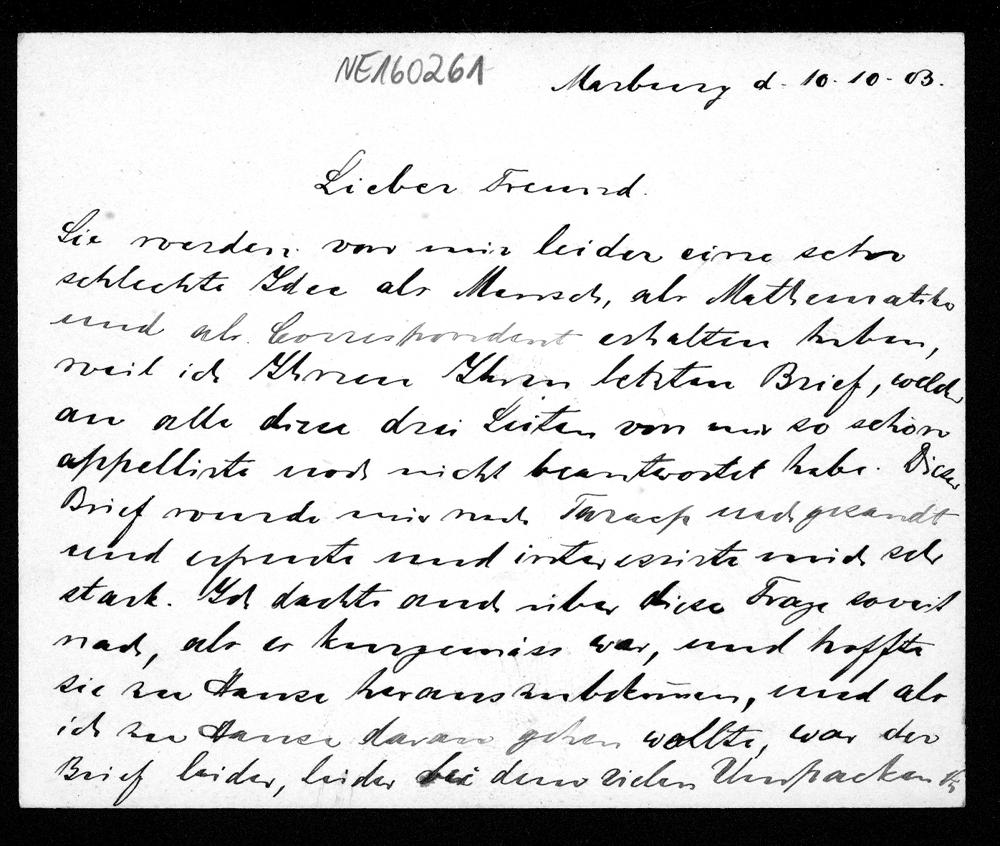 NE160261
Marburg d. 10.10.03.
Lieber Freund.
Sie werden von mir leider eine sehr
schlechte Idee als Mensch, als Mathematiker
und als Correspondent erhalten haben,
weil ich Ihnen Ihren letzten Brief, welcher
an alle diese drei Seiten von mir so schön
appellirte noch nicht beantwortet habe. Dieser
Brief wurde mir nach Tarasp nachgesandt
und erfreute und interessirte mich sehr
stark. Ich dachte auch über diese Frage soweit
nach, als es kurgemäss war, und hoffte
sie zu Hause herauszubekommen, und als
ich zu Hause daran gehen wollte, war der
Brief leider, leider bei dem vielen Umpacken